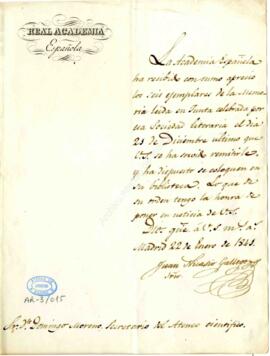 REAL ACADEMIA
Española
La Academia Española
ha recibido con sumo aprecio
los seis ejemplares de la Memo
ria leida en Junta celebrada por
esa Sociedad literaria el dia
23 de Diciembre último que
V.S. se ha servido remitirle,
y ha dispuesto se coloquen en
su biblioteca. Lo que de
su orden tengo la honra de
poner en noticia de V.S.
Dios gue. à V.S. ms. as.
Madrid 22 de Enero de
Juan Nicasio Gallego
Srio.
AR-3/015
Sr. Dn. Domingo Moreno, Secretario del Ateneo cientifico.